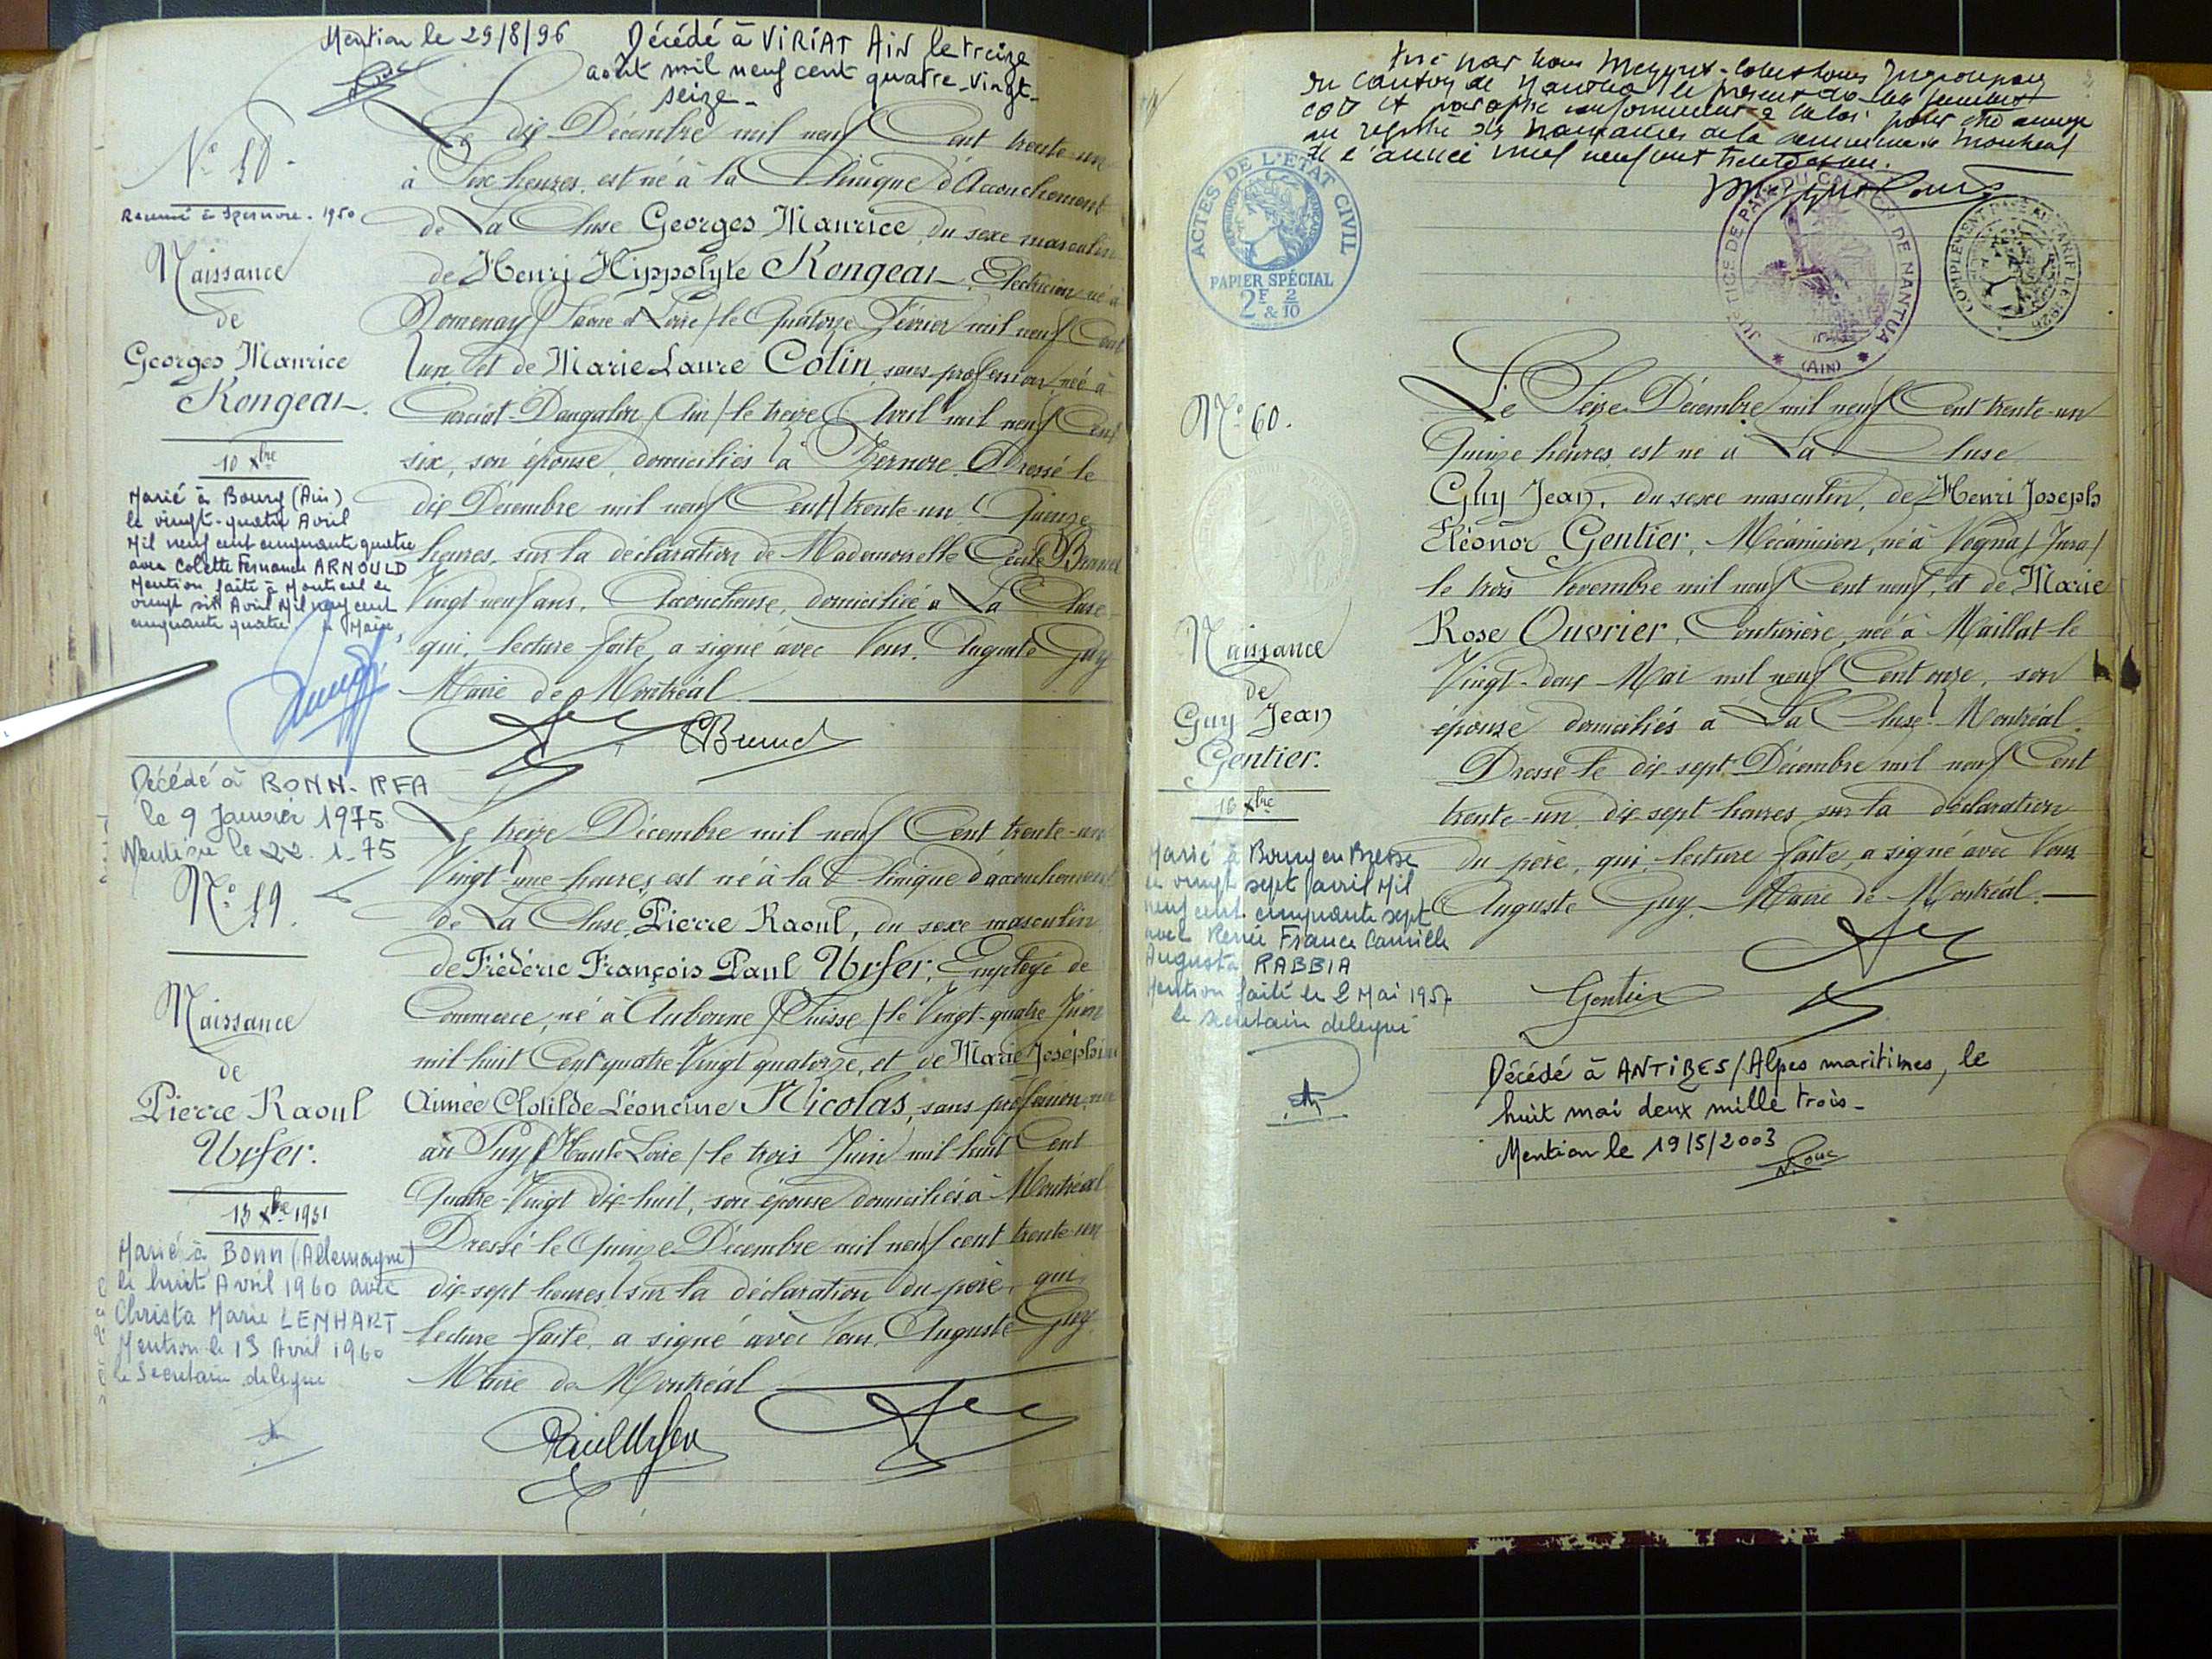 Mention le 29/8/96 Décédé à VIRIAT AIN le treize
août mil neuf cent quatre-vingt-
seize-
Le dix Décembre mil neuf Cent trente-un
à Six heures, est né à la Clinique d'Accouchement
de La Cluse Georges Maurice, du sexe masculin
de Henri Hippolyte Rongear, Electricien né à
Romenay / Saône et Loire / le Quatorze Février mil neuf Cent
un et de Marie Laure Colin, sans profession, née à
/ Ain / le treize Avril mil neuf Cent
six, son épouse, domiciliés à Izernore Dressé le
dix Décembre mil neuf Cent trente-un, Quinze
heures, sur la déclaration de Mademoiselle Cécile
Vingt neuf ans, Accoucheuse, domiciliée à La Cluse
qui, lecture faite, a signé avec Nous, Auguste Guy
Maire de Montréal
Naissance
de
Georges Maurice
Rongear.
10 Xbre
Marié à Bourg (Ain)
le vingt-quatre Avril
Mil neuf cent cinquante quatre
avec Colette Fernande ARNOULD
Mention faite à Montréal le
vingt six Avril Mil neuf cent
cinquante quatre Le Maire,
Décédé à BONN-RFA
le 9 Janvier 1975
Mention le 22.1-75
Naissance
de
Pierre Raoul
Urfer.
13 Xbre 1931
Marié à Bonn (Allemagne)
le huit Avril 1960 avec
Christa Marie LENHART
Mention le 13 Avril 1960
le Secrétaire délégué
Le treize Décembre mil neuf Cent trente-un
Vingt-une heures, est né à la Clinique d'accouchement
de La Cluse, Pierre Raoul, du sexe masculin
de Frédéric François Paul Urfer, Employé de
Commerce, né à Aubonne / Suisse / le Vingt-quatre Juin
mil huit Cent quatre-Vingt quatorze, et de Marie Joséphine
Aimée Clotilde Léoncine Nicolas, sans profession, née
au Puy / Haute Loire / le trois Juin mil huit Cent
Quatre-Vingt dix-huit, son épouse domiciliés à Montréal
Dressé le Quinze Décembre mil neuf cent trente-un
dix-sept heures sur la déclaration du père, qui
lecture faite, a signé avec Nous, Auguste Guy
Maire de Montréal
Paul Urfer
du Canton de Nantua le présent
de l'année mil neuf cent trente et un.
ACTES DE L'ETAT CIVIL
PAPIER SPÉCIAL
2F & 2/10
JUSTICE DE PAIX DU CANTON DE NANTUA
* (AIN) *
N° 60.
Naissance
de
Guy Jean
Gentier.
16 Xbre
Marié à Bourg en Bresse
le vingt sept avril Mil
neuf cent cinquante sept
avec Renée France Camille
Augusta RABBIA
Mention faite le 2 Mai 1957
le secrétaire délégué
Le Seize Décembre mil neuf Cent trente-un
Quinze heures est né à La Cluse
Guy Jean, du sexe masculin, de Henri Joseph
Eléonor Gentier, Mécanicien, né à Vogna / Jura /
le trois Novembre mil neuf Cent neuf, et de Marie
Rose Ouvrier, Couturière, née à Maillat le
Vingt-deux Mai mil neuf Cent onze, son
épouse domiciliés à La Cluse Montréal
Dressé le dix-sept Décembre mil neuf Cent
trente-un, dix-sept heures sur la déclaration
du père, qui, lecture faite, a signé avec Nous
Auguste Guy, Maire de Montréal.
Gentier
Décédé à ANTIBES / Alpes maritimes, le
huit mai deux mille trois-
Mention le 19/5/2003